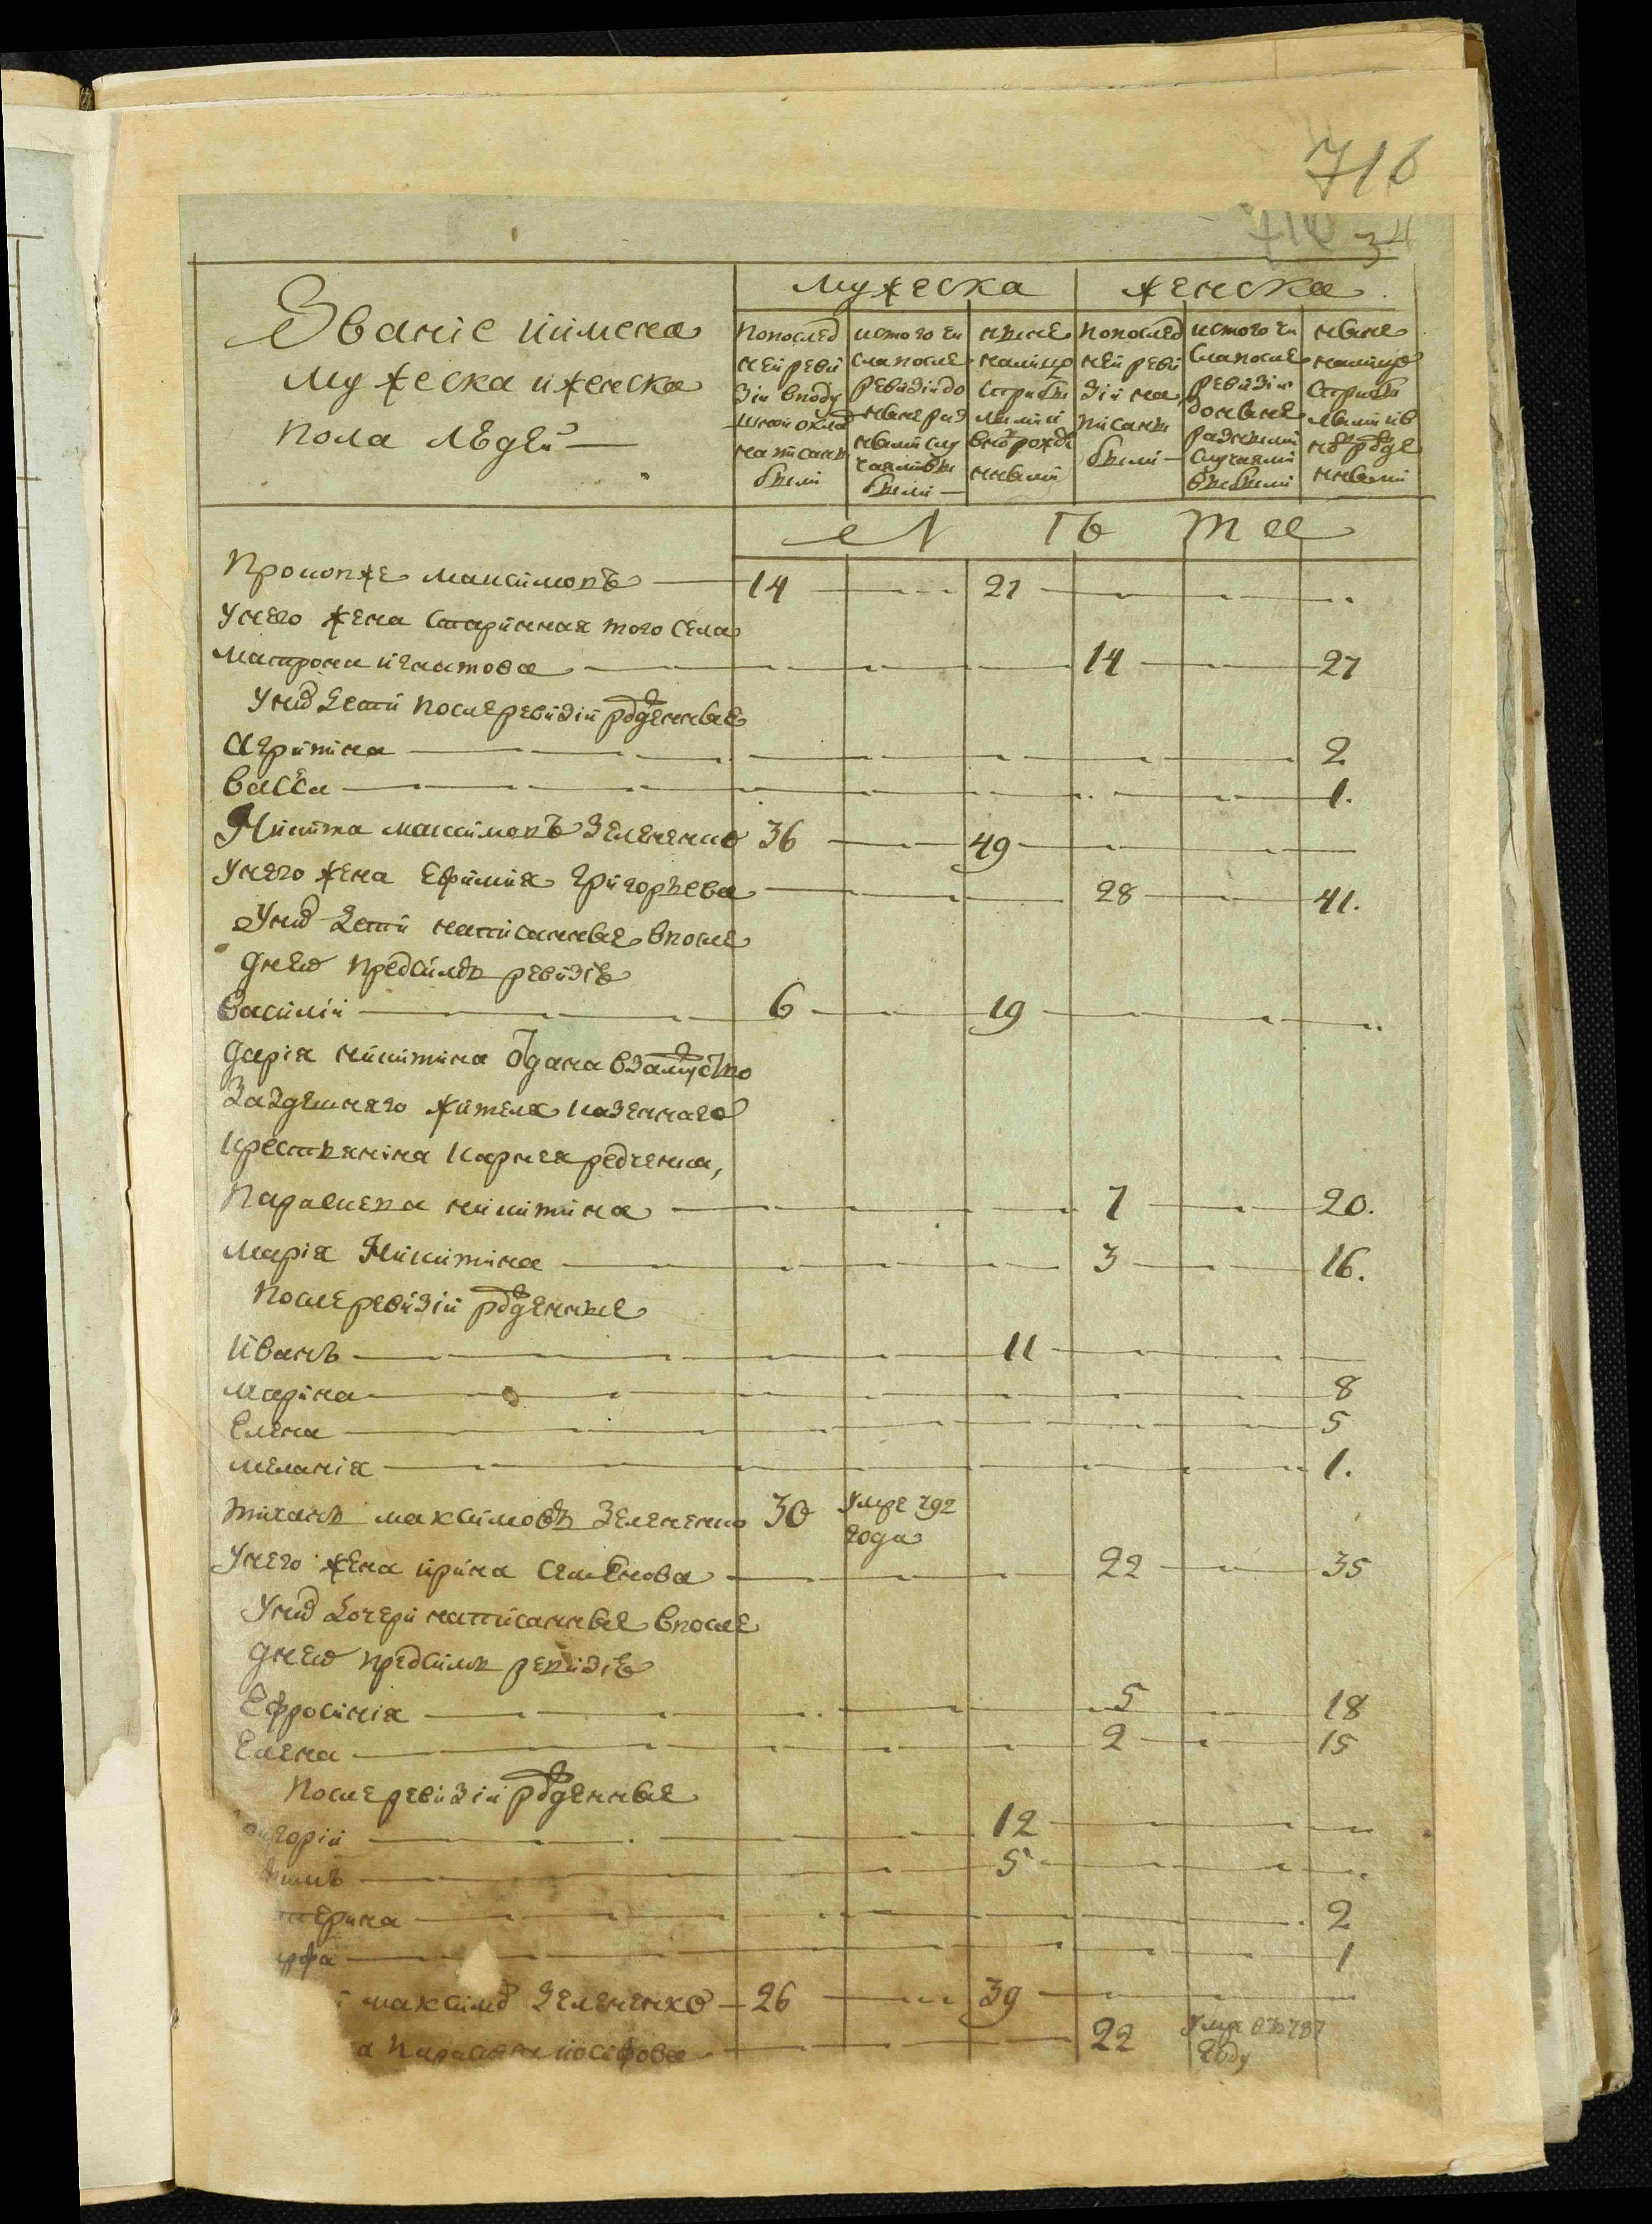 716
34
Званіе иимена
мужеска иженска
пола людей —
мужеска
женска
Попослед
ней реви
зіи вподу
шной окла
написаны
были
истого чи
сла после
ревизіи до
ныне раз
ными слу
чаями вы
были —
ныне
налицо
старыми
и
внов рожде
нными
Попослед
ней реви
зіи на
писаны
были —
истого чи
сла после
ревизіи
доныне
разными
случаями
выбыли
ныне
налицо
старыми
и в
нов рожде
нными
лѣта
Прокопже максимовъ — 14 — 27
Унего жена старинная того села
матрона игнатова — 14 — 27
Уних дети после ревизіи рожденные
Агрипина — 2
васса — 1.
Никита максимовъ Зелененко 36 — 49
Унего жена Ефимия григорьева — 28 — 41.
Уних дети написанные впосле
днею предсимъ ревизію
василій — 6 — 19
дарія никитина отдана взамужство
Заздешняго жителя казеннаго
крестьянина карнея редченка,
параскева никитина — 7 — 20.
марія Никитина — 3 — 16.
После ревизіи рожденные
иванъ — 11
марина — 8
Елена — 5
меланія — 1.
максимовъ Зелененко 30 умре 792
года
Унего жена ирина семенова — 22 — 35
Уних дочери написанные впосле
днею предсимъ ревизію
Ефросинія — 5 — 18
Елена — 2 — 15
После ревизіи рожденные
игорій — 12
имъ — 5
терина — 2
рфа — 1
максимов Зелененко — 26 — 39
а параскева иосифова — 22 умре въ 787
году